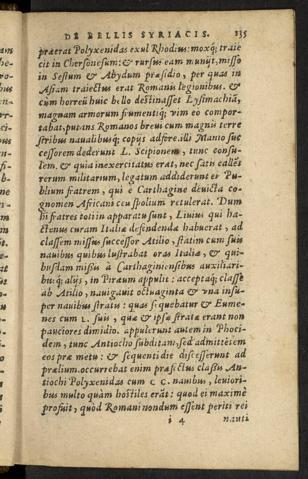 DE BELLIS SYRIACIS. 135
præerat Polyxenidas exul Rhodius: moxq; traie
cit in Chersonesum: & rursus eam munyt, misso
in Sestum & Abydum præsidio, per quas in
Asiam traiectus erat Romanis legionibus. &
cum horreū huic bello destinasset Lysimachiā,
magnam armorum frumentiq; vim eo compor-
tabat, putans Romanos breui cum magnis terre
stribus naualibusq; copijs adfore. illi Manio suc
cessorem dederunt L. Scipionem, tunc consu-
lem. & quia inexercitatus erat, nec satis callēs
rerum militarium, legatum addiderunt ei Pu-
blium fratrem, qui e Carthagine deuicta co-
gnomen Africani ceu spolium retulerat. Dum
hi fratres toti in apparatu sunt, Liuius qui ha-
ctenus curam Italiæ defendendæ habuerat, ad
classem missus successor Atilio, statim cum suis
nauibus quibus lustrabat oras Italiæ, & qui-
busdam missis à Carthaginiensibus auxiliari-
bus q; alijs, in Piræum appulit: acceptaq; classe
ab Atilio, nauigauit octuaginta & vna insu-
per nauibus stratis: quas sequebatur & Eume-
nes cum L. suis, quæ & ipsæ stratæ erant non
pauciores dimidio. appulerunt autem in Phoci-
dem, tunc Antiocho subditam, sed admittētem
eos præ metu: & sequenti die discesserunt ad
prælium. occurrebat enim præfectus classis An-
tiochi Polyxenidas cum C C. nauibus, leuiori-
bus multo quàm hostiles erāt: quod ei maximè
profuit, quòd Romani nondum essent periti rei
i 4